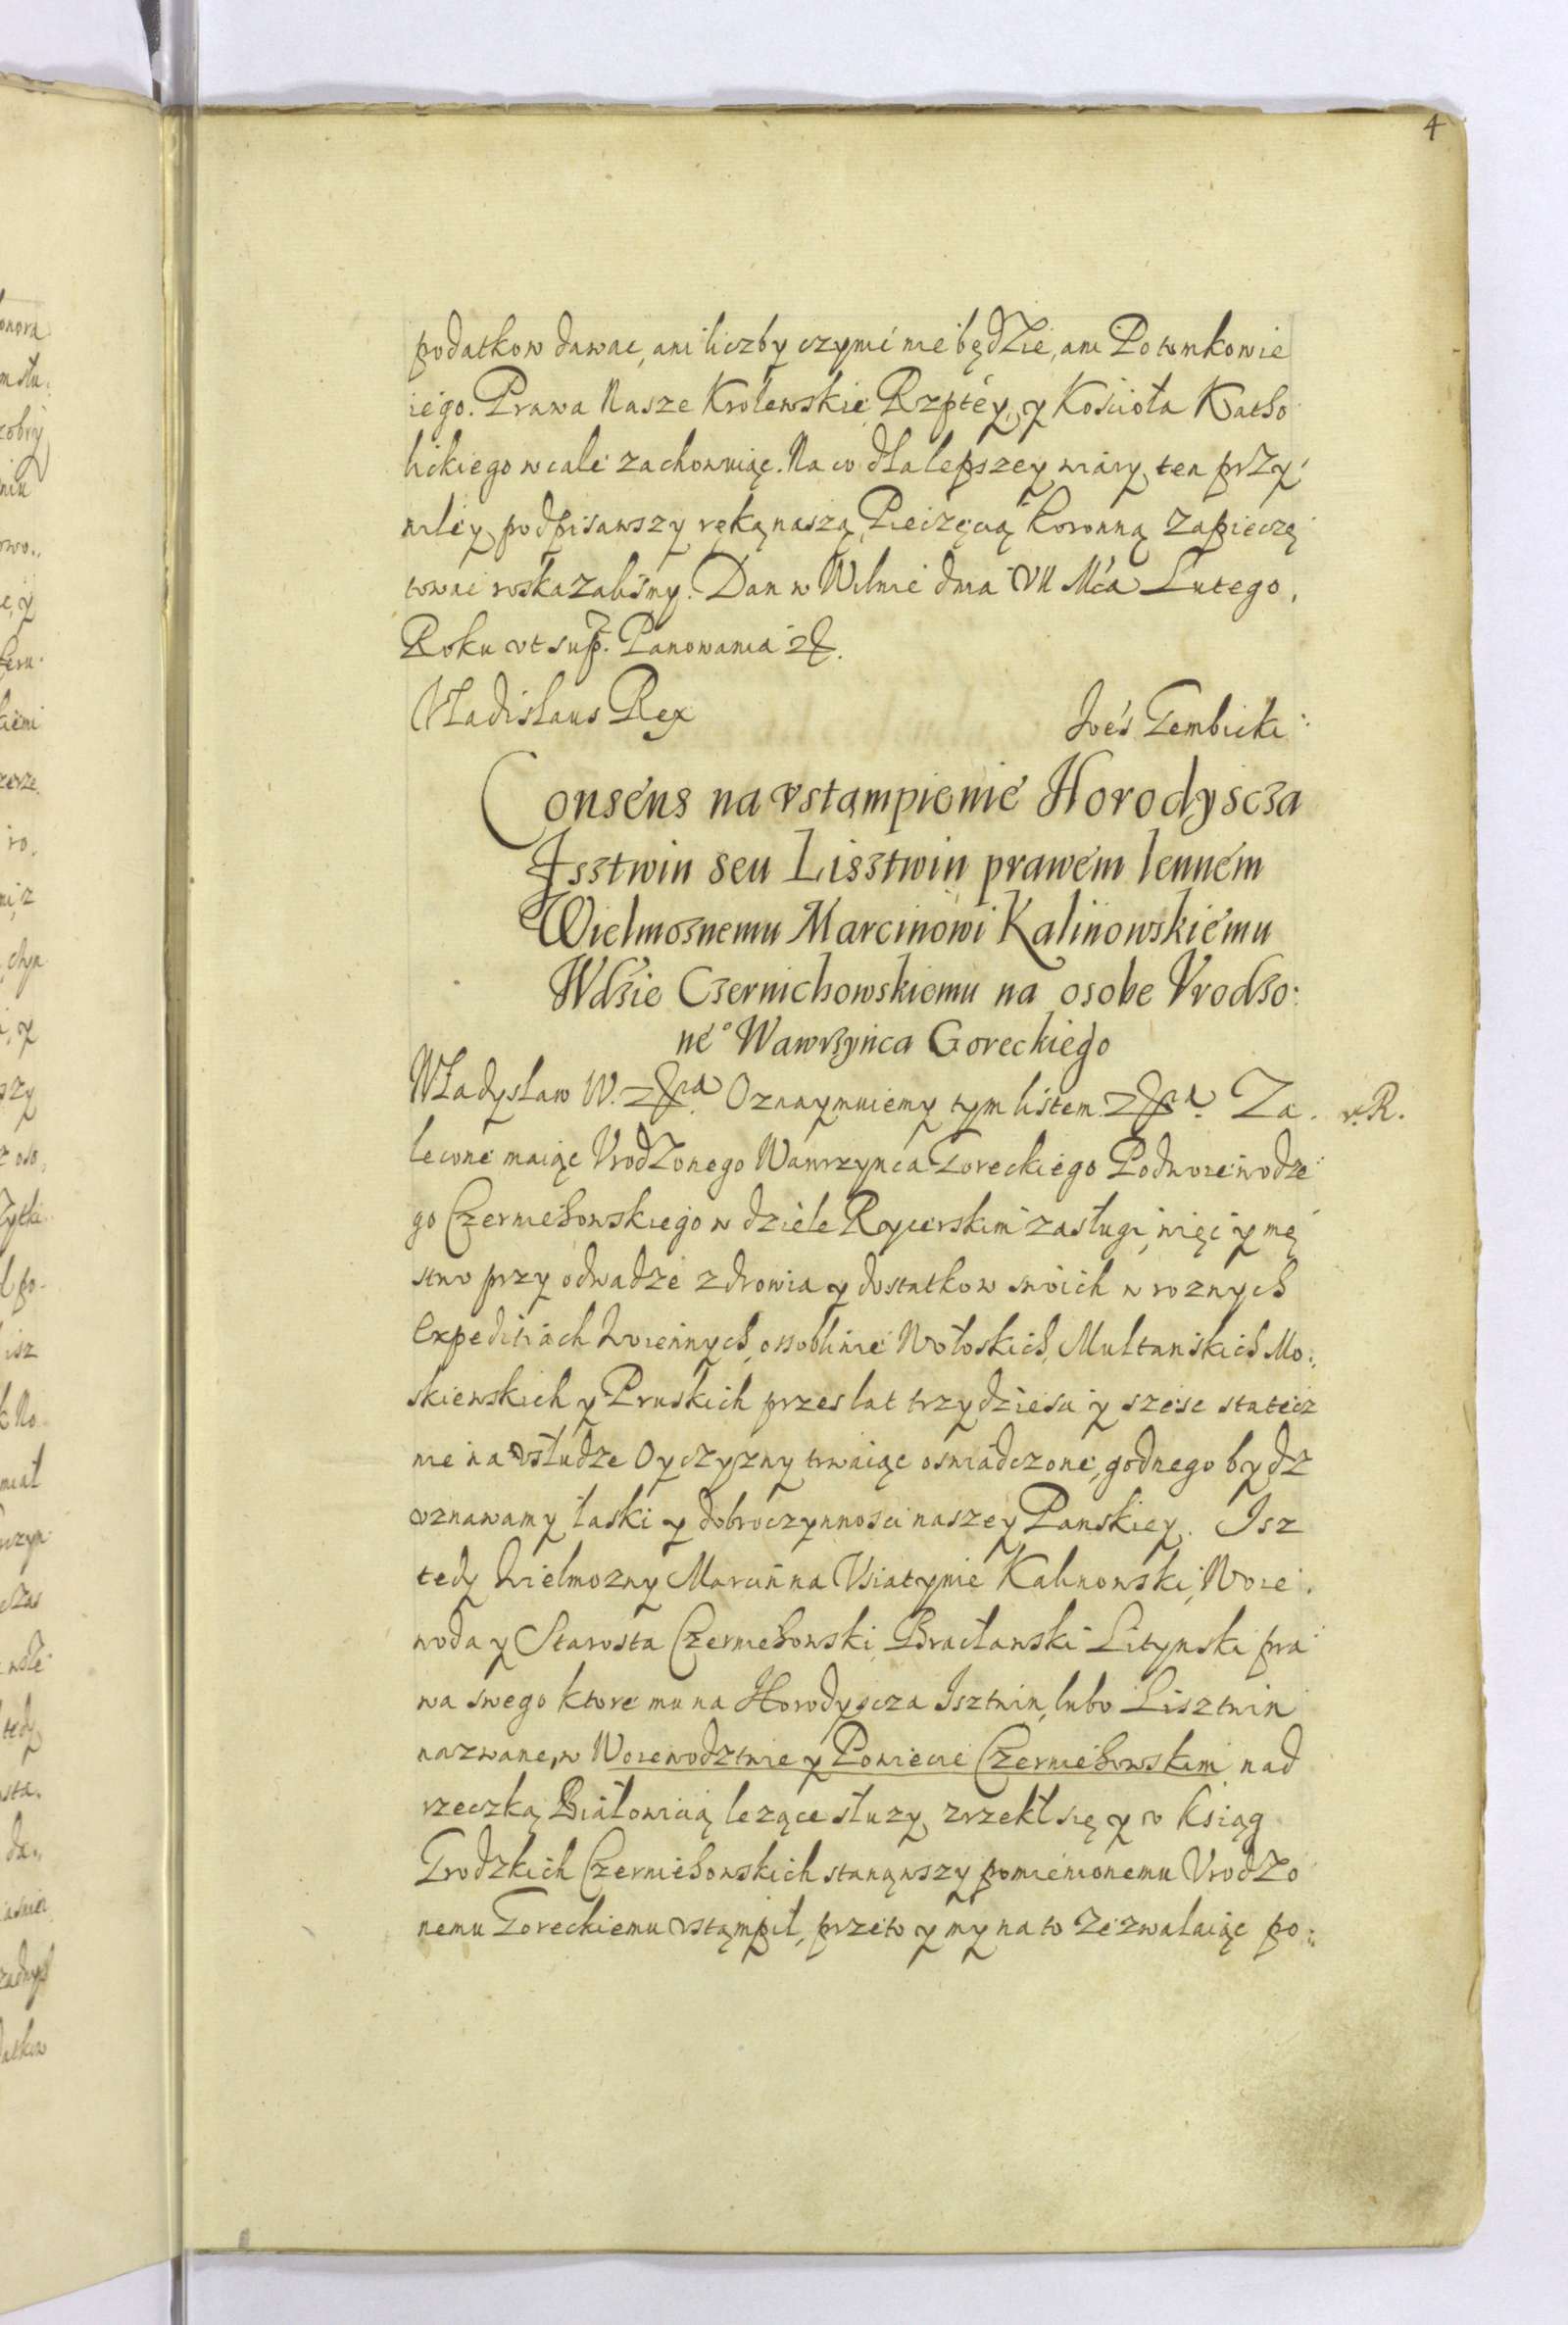 4
podatkow dawac, ani liczby czynić nie będzie, ani Potomkowie
iego. Prawa Nasze Krolewskie, Rzptey, y Kościoła Katho
lickiego wcale zachowuiąc. Na co dla lepszey wiary, ten przy
wiley podpisawszy ręką naszą, Pieczęcią Koronną zapieczę
towac roskazalismy. Dan w Wilnie dnia VII Mca Lutego,
Roku vt sup. Panowania
Vladislaus Rex
Joes Gembicki
Consens na vstampienie Horodyscza
Isztwin seu Lisztwin prawem lennem
Wielmoznemu Marcinowi Kalinowskiemu
Wdzie Czernichowskiemu na osobe Vrodzo:
neº Wawrzynca Goreckiego
Władysław W. Oznaymuiemy tym listem Za. R.
lecone maiąc Vrodzonego Wawrzynca Goreckiego Podwoiewodze
go Czerniehowskiego w dziele Rycerskim zasługi, więc y mę
stwo przy odwadze zdrowia y dostatkow swoich w roznych
Expeditiach Woiennych, ossobliwie Wołoskich, Multanskich Mo:
skiewskich y Pruskich przes lat trzydziesci y szesc statecz
nie na vsłudze Oyczyzny trwaiąc oswiadczone, godnego bydz
vznawamy łaski y dobroczynnosci naszey Panskiey. Isz
tedy Wielmozny Marcin na Vsiatynie Kalinowski, Woie.
woda y Starosta Czerniehowski, Bracławski Litynski pra
wa swego ktore mu na Horodyscza Isztwin, lubo Lisztwin
nazwane, w Woiewodztwie y Powiecie Czerniehowskim nad
rzeczką Białowicią lezące słuzy, zrzekł się y v Ksiąg
Grodzkich Czerniehowskich stanąwszy pomienionemu Vrodzo
nemu Goreckiemu vstąmpił, przeto y my na to zezwalaiąc po: